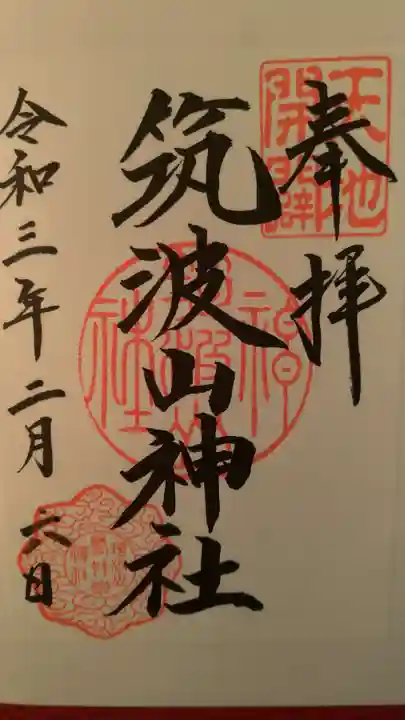 奉拝
天地開闢
筑波山神社
令和三年二月六日